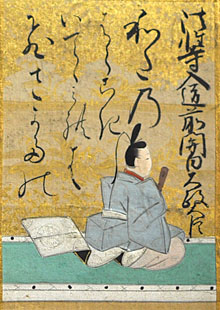 法性寺入道前関白太政大臣
和たの
はらこき
いてゝみれは
ひさかたの